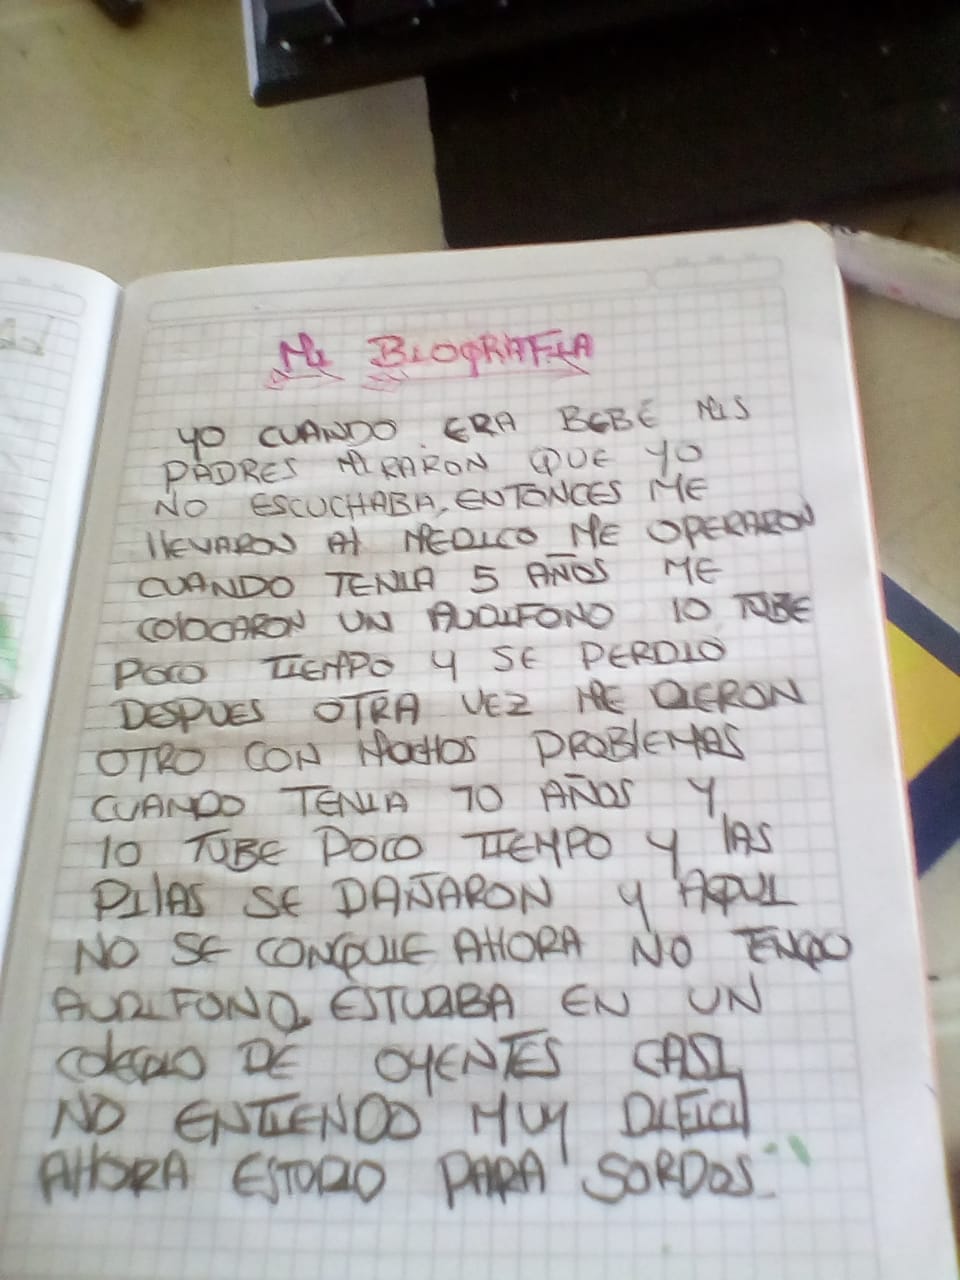 Mi BIOGRAFIA
YO CUANDO ERA BEBÉ MIS
PADRES MIRARON QUE YO
NO ESCUCHABA, ENTONCES ME
llEVARON Al MEDICO ME OPERARON
CUANDO TENIA 5 AÑOS ME
COlOCARON UN AUDIFONO lO TUBE
POCO TIEMPO Y SE PERDIO
DESPUES OTRA VEZ ME DIERON
OTRO CON MUCHOS PROBlEMAS
CUANDO TENIA 10 AÑOS Y
lO TUBE POCO TIEMPO Y lAS
PIlAS SE DAÑARON Y AQUI
NO SE CONQUIE AHORA NO TENGO
AUDIFONO, ESTUDIABA EN UN
COlEGIO DE OYENTES CASI
NO ENTIENDO MUY DIFICIl
AHORA ESTUDIO PARA SORDOS